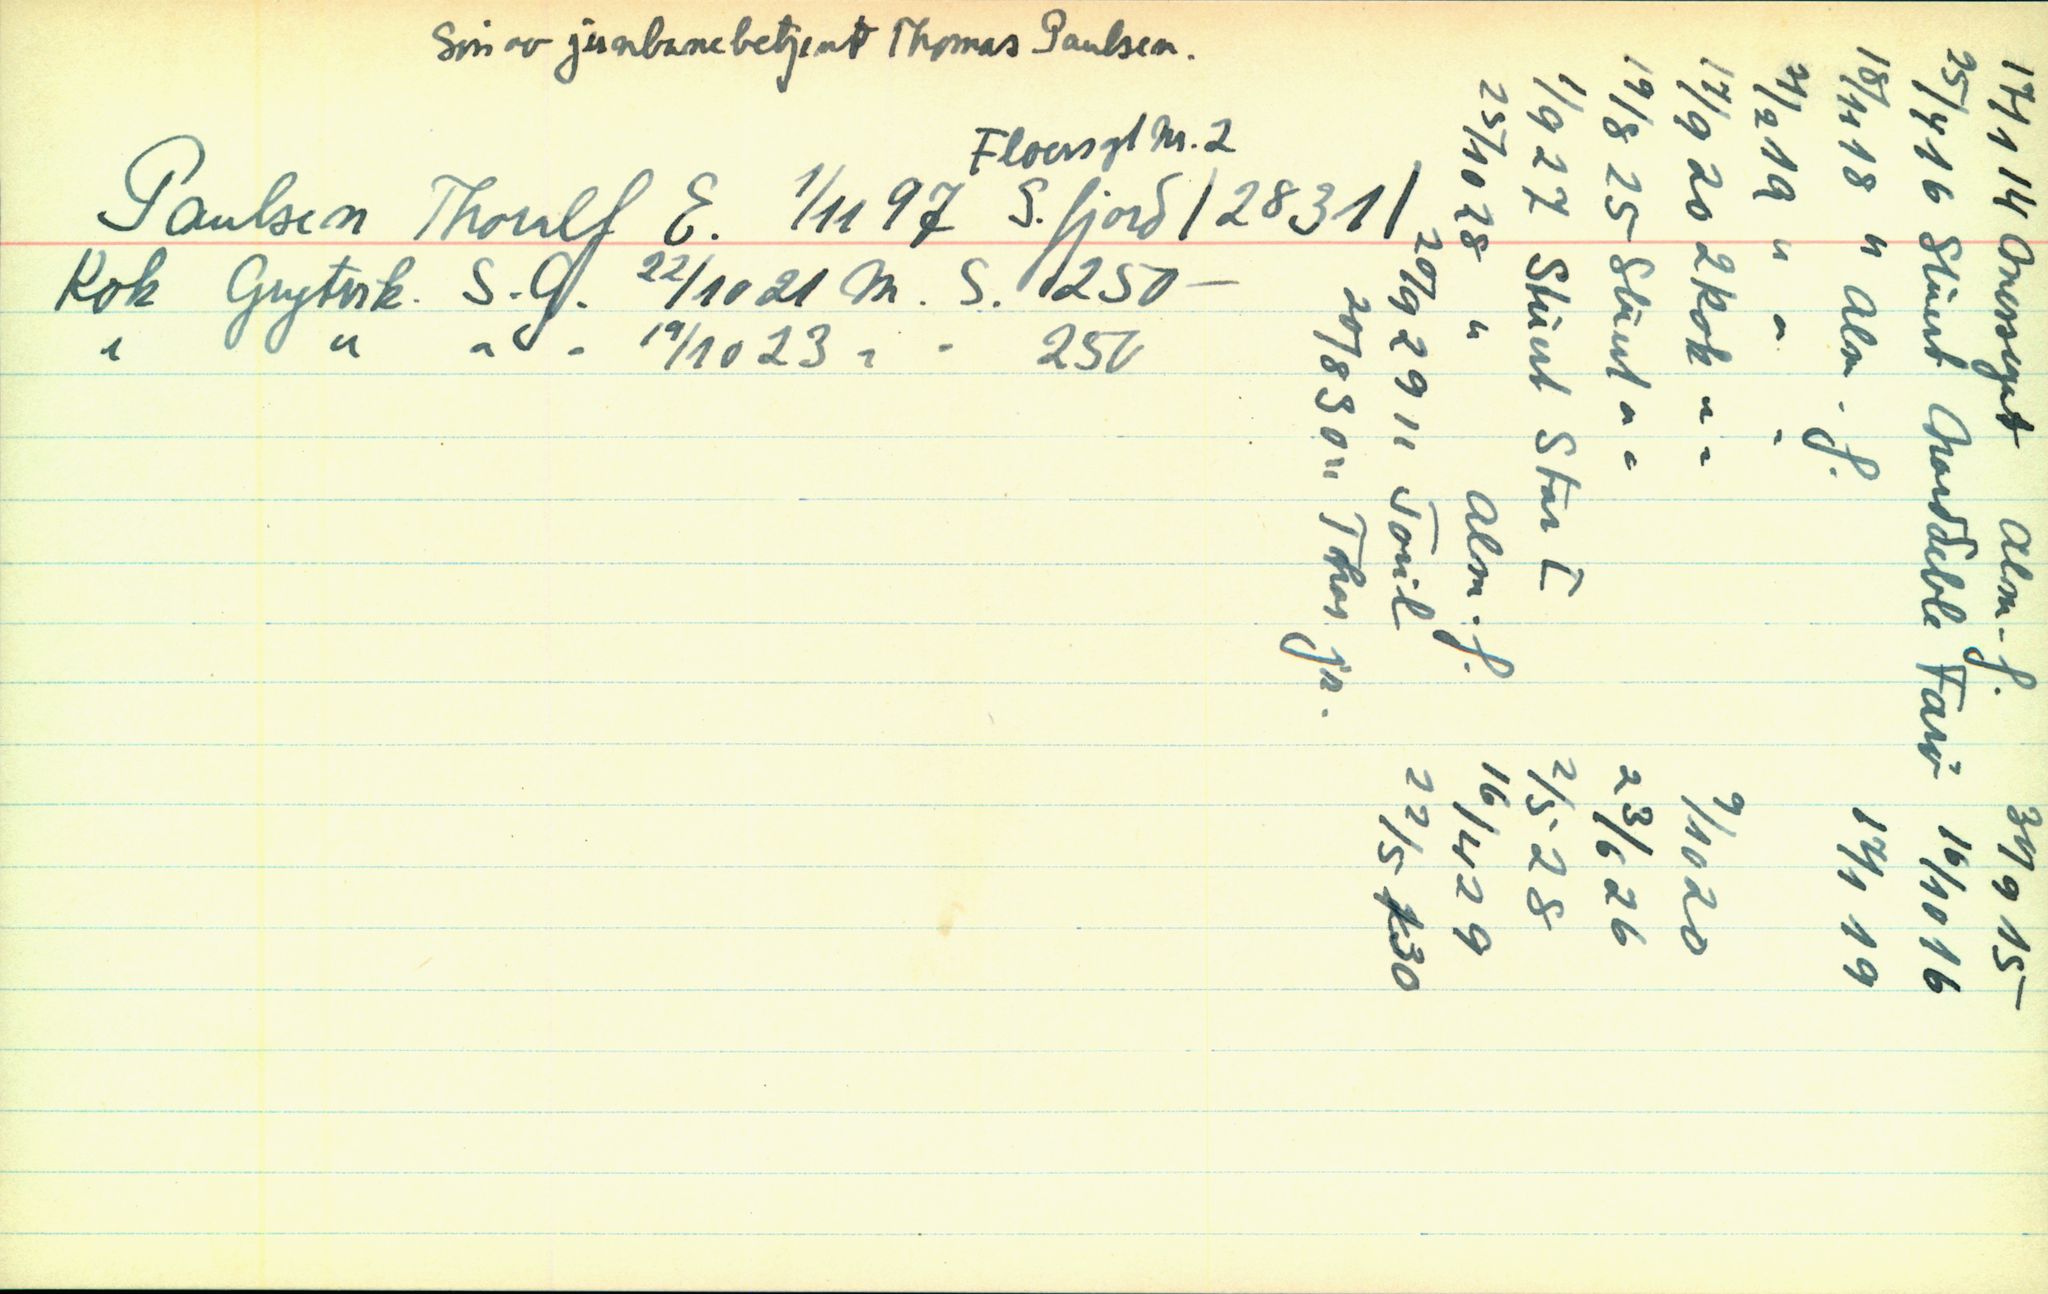 Søn av jernbanebetjent Thomas Paulsen.
Floersgt Nr. 2
Paulsen Thoralf E. 1/11 97 S. fjord /2831/
Kok Grytvik. S. G. 22/10 21 M. S. 1250 –
" " " " 19/10 23 " " 250
17/1 14 Alm-f. 31/9 15
25/4 16 Stuert Nordeble Farö 16/10 16
18/11 18 " Alm-f. 17/1 19
21/2 19 " " "
17/9 20 2 Kok " " 9/10 20
19/8 25 Stuert " " 23/6 26
1/9 27 Stuert Star I 2/5 28
25/10 28 " Alm.f. 16/4 29
20/9 29 " Toril 22/5 30
20/8 30 " Thor jr.